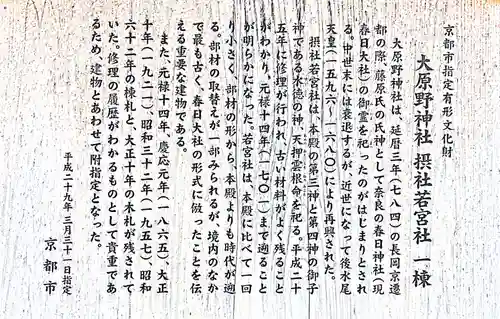 京都市指定有形文化財
大原野神社 摂社若宮社 一棟
大原野神社は、延暦三年(七八四)の長岡京遷
都の際、藤原氏の氏神として奈良の春日神社(現
春日大社)の御霊を祀ったのがはじまりとされ
る。中世末には衰退するが、近世になって後水尾
天皇(一五九六~一六八〇)により再興された。
摂社若宮社は、本殿の第三神と第四神の御子
神である水徳の神、天押雲根命を祀る。平成二十
五年に修理が行われ、古い材料がよく残ること
がわかり、元禄十四年(一七〇一)まで遡ること
が明らかになった。若宮社は、本殿に比べて一回
り小さく、部材の形から、本殿よりも時代が遡
る。部材の取替えが一部みられるが、境内のなか
で最も古く、春日大社の形式に倣ったことを伝
える重要な建物である。
また、元禄十四年、慶応元年(一八六五)、大正
十年(一九二一)、昭和三十二年(一九五七)、昭和
六十二年の棟札と、大正十年の木札が残されて
いた。修理の履歴がわかるものとして貴重であ
るため、建物とあわせて附指定となった。
平成二十九年三月三十一日指定
京都市